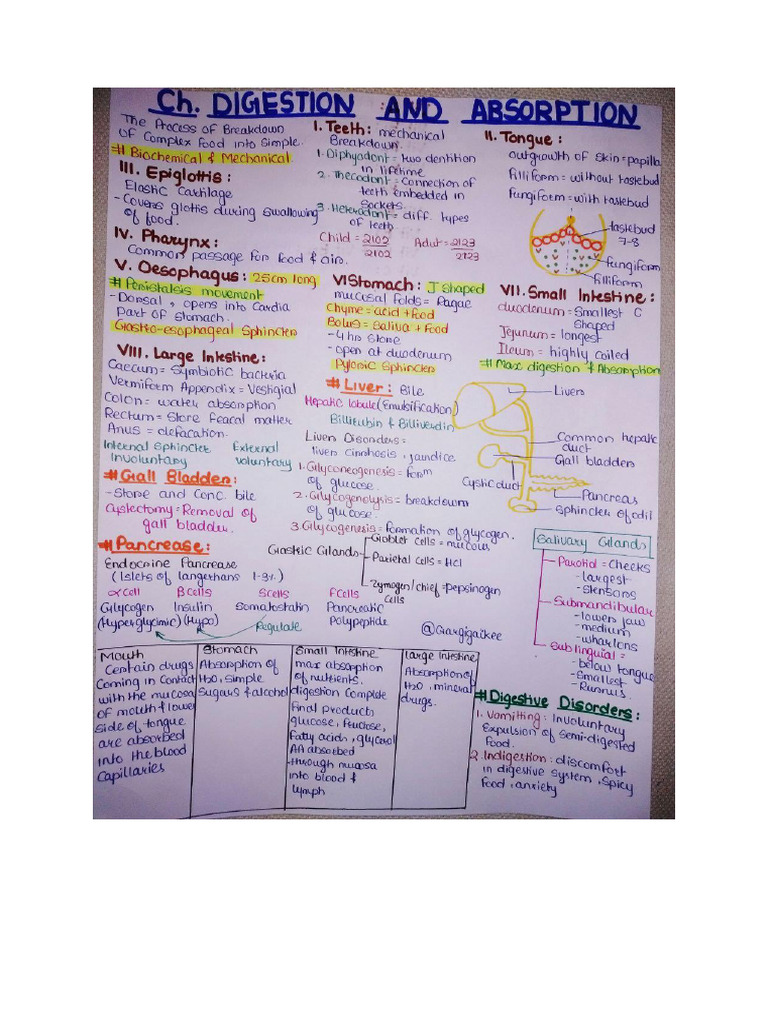 Ch. DIGESTION AND ABSORPTION
The Process of Breakdown
of Complex Food into Simple.
# Biochemical & Mechanical
I. Teeth: mechanical
Breakdown.
1. Diphyodont = two dentition
in lifetime
2. Thecodont = Connection of
teeth embedded in
Sockets.
3. Heterodont = diff. types
of teeth
Child = 2102
2102
Adut = 2123
2123
II. Tongue :
outgrowth of skin = papilla
filliform = without tastebud
fungiform = with tastebud
tastebud
7-8
fungiform
filliform
III. Epiglottis :
Elastic Cartilage
- Covers glottis during swallowing
of food.
IV. Pharynx :
Common passage for food & air.
V. Oesophagus : 25cm long
# Peristalsis movement
- Dorsal, opens into Cardia
Part of Stomach.
Gastro-esophageal Sphincter
VI Stomach : J Shaped
mucosal folds = Rugae
Chyme = acid + food
Bolus = Saliva + Food
- 4 hr store
- open at duodenum
Pyloric Sphincter
VII. Small Intestine :
duodenum = Smallest C
Shaped
Jejunum = longest
Ileum = highly coiled
# Max digestion & Absorption
VIII. Large Intestine :
Caecum = Symbiotic bacteria
Vermiform Appendix = Vestigial
Colon = water absorption
Rectum = Store feacal matter
Anus = defacation.
Internal Sphincter External
Involuntary voluntary
# Liver : Bile
Hepatic lobule (Emulsification)
Billirubin & Billiverdin
Liver Disorders =
liver cirrohosis, jaundice
1. Glyconeogenesis = form
of glucose.
2. Glycogenolysis = breakdown
of glucose.
3 Glycogenesis = Formation of glycogen.
Liver
Common hepatic
duct
Gall bladder
Cystic duct
Pancreas
Sphincter of odii
# Gall Bladder :
- Store and Conc. bile
Cystectomy = Removal of
gall bladder.
# Pancrease :
Endocrine Pancrease
(Islets of langerhans 1-2%)
α cell β cells δ cells F cells
Glycogen Insulin Somatostatin Pancreatic
Polypeptide
(Hyperglycimic) (Hypo) Regulate
Gastric Glands
Globlet cells = mucous
Parietal cells = HCl
Zymogen/chief = pepsinogen
cells
@Gargigaikee
Salivary Glands
Parotid = Cheeks
- largest
- stensons
Submandibular
- lower jaw
- medium
- whartons
Sublinguial =
- below tongue
- Smallest
- Rivinus.
Mouth
Centain drugs
Coming in Contact
with the mucosa
of mouth & lower
side of tongue
are absorbed
into the blood
Capillaries
Stomach
Absorption of
H2O, simple
Sugars & alcohol
Small Intestine
max absorption
of nutrients.
digestion Complete
final products
glucose, fructose,
fatty acids, glycerol
AA absorbed
through mucosa
into blood &
lymph
Large Intestine
Absorption of
H2O, mineral
drugs.
# Digestive Disorders :
1. Vomitting : Involuntary
Expulsion of Semi-digested
Food.
2. Indigestion : discomfort
in digestive system, Spicy
Food, anxiety